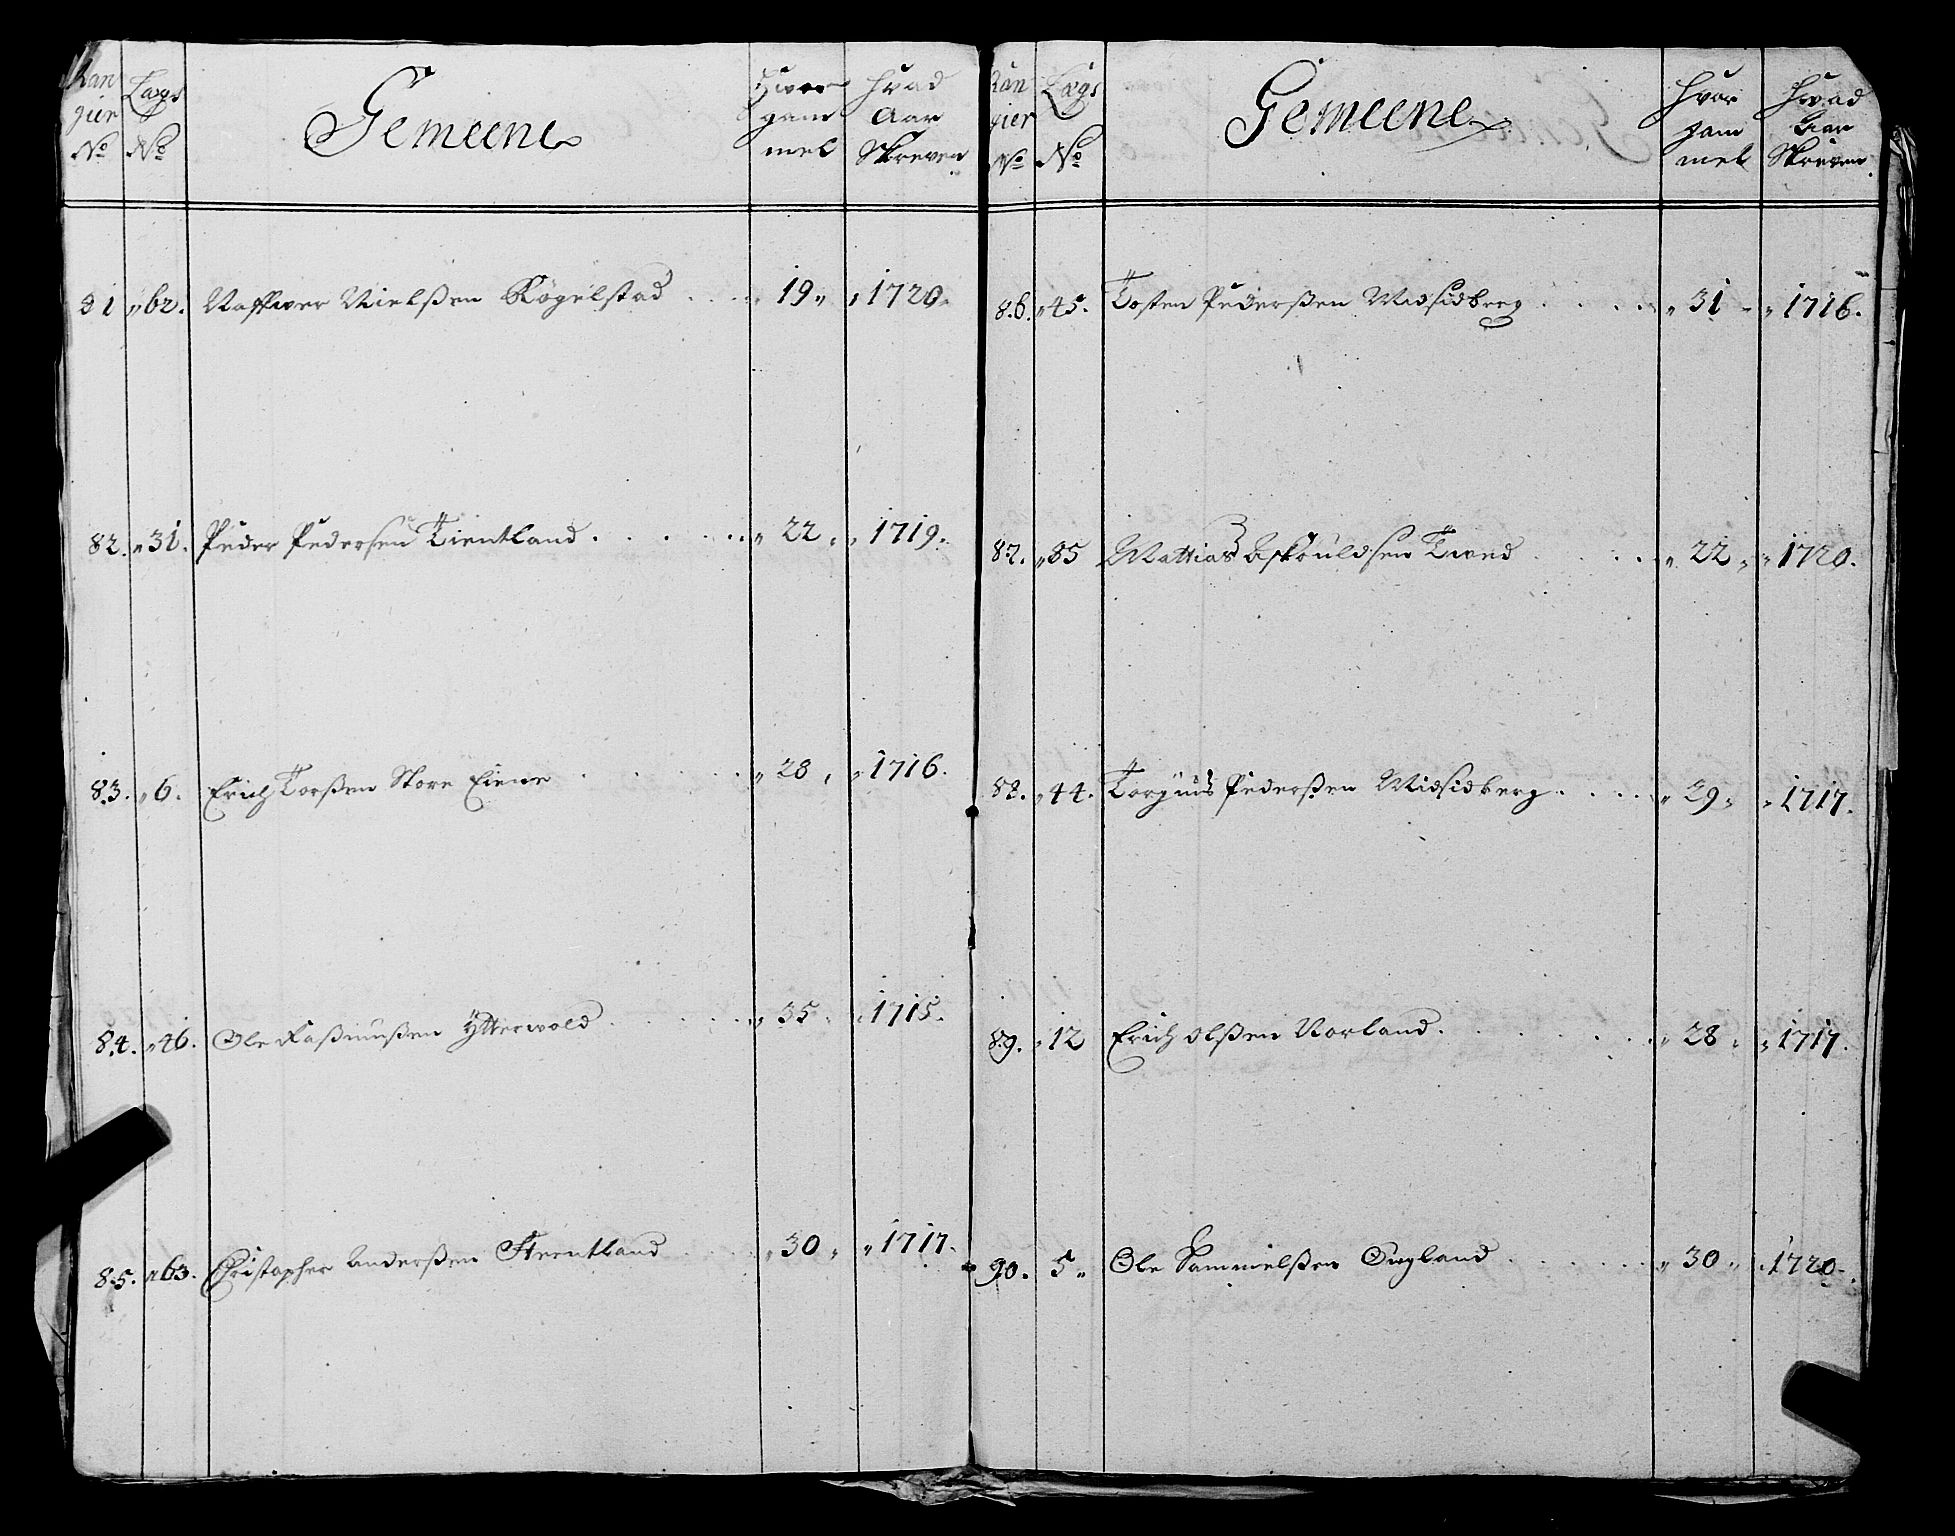 Ran
gier
No
Lægs
No
Gemeene
Hvor
gam
mel
Hvad
Aar
Skreven
81 62. Raffver Nielsßen Røgelstad 19 1720.
82. 31. Peder Pedersen Tientland 22 1719.
83. 6. Erich Torßen Store Eiene 28 1716.
84. 46. Ole Raßmusßen Ytterwold 35 1715.
85. 63. Christopher Anderßen Steentland 30 1717.
Ran
gier
No
Lægs
No
Gemeene
Hvor
gam
mel
Hvad
Aar
Skreven
86. 45. Tosten Pederßen Midsidberg 31 1716.
87. 85 Mattias Askouldsen Tved 22 1720.
88. 44. Torgius Pederßen Midsidberg 29 1717.
89. 12 Erich Olßen Norland 28 1717.
90. 5 Ole Sammielßen 30 1720